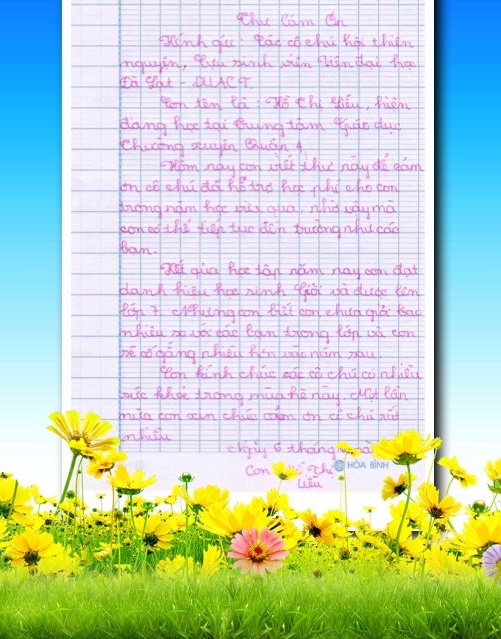 Thư Cám Ơn
Kính gửi: Các cô chú hội thiện
nguyện, Cựu sinh viên Viện đại học
Đà Lạt - DUACT.
Con tên là: Hồ Thị Liễu, hiện
đang học tại Trung tâm Giáo dục
Thường xuyên Quận 4.
Hôm nay con viết thư này để cám
ơn cô chú đã hỗ trợ học phí cho con
trong năm học vừa qua, nhờ vậy mà
con có thể tiếp tục đến trường như các
bạn.
Kết qủa học tập năm nay con đạt
danh hiệu học sinh Giỏi và được lên
lớp 7. Nhưng con biết con chưa giỏi bao
nhiêu so với các bạn trong lớp và con
sẽ cố gắng nhiều hơn vào năm sau.
Con kính chúc các cô chú có nhiều
sức khoẻ trong mùa hè này. Một lần
nữa con xin chúc cám ơn cô chú rất
nhiều
Ngày 6 tháng
HÒA BÌNH
Con Hồ Thị
Liễu